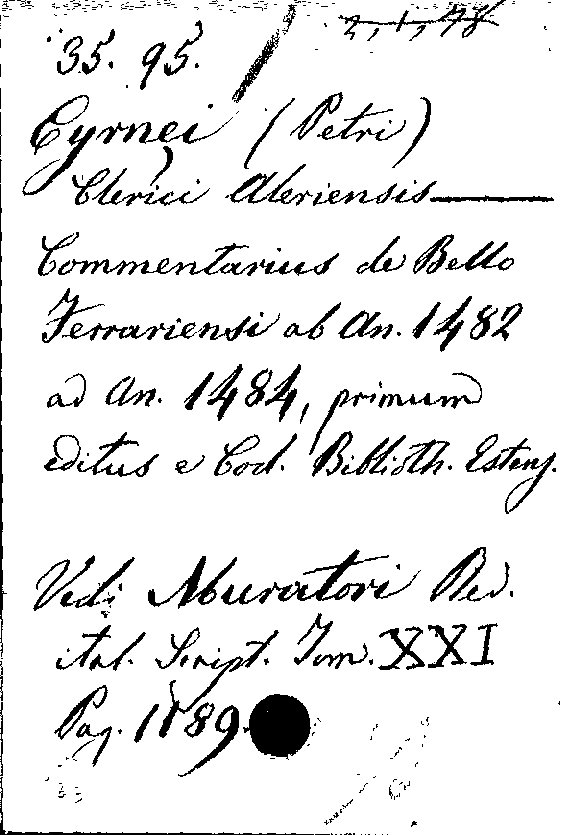 2, 1, 78
35. 95.
Cyrnei (Petri)
Clerici Aleriensis
Commentarius de Bello
Ferrariensi ab An. 1482
ad An. 1484, primum
editus e Cod. Biblioth. Estens.
Vedi Muratori Rer.
ital. Script. Tom. XXI
Pag. 1189.